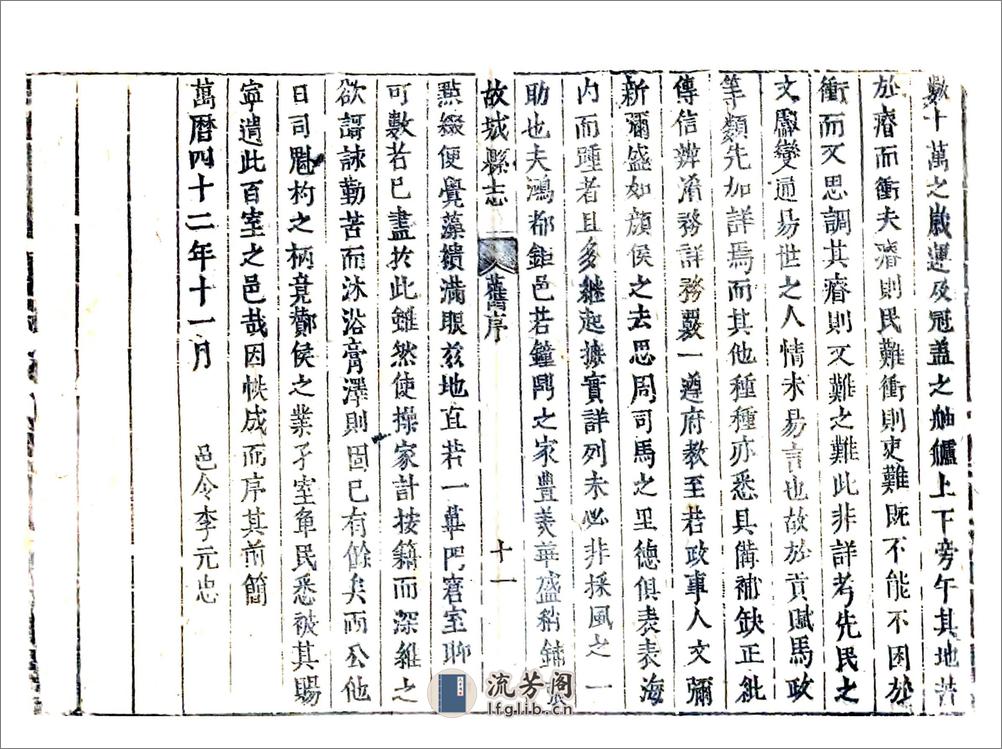 數十萬之歲運及冠蓋之舳艫上下旁午其地苦
於瘠而衝夫瘠則民難衝則吏難既不能不困於
衝而又思調其瘠則又難之難此非詳考先民之
文獻變通易世之人情未易言也故於貢賦馬政
等類先加詳焉而其他種種亦悉具備補缺正紕
傳信辨淆務詳務覈一遵府教至若政事人文彌
新彌盛如顏侯之去思周司馬之里德俱表表海
内而踵者且多繼起據實詳列未必非採風之一
助也夫鴻都鉅邑若鐘鼎之家豊美華盛稍鋪張
故城縣志 舊序 十一
點綴便覺藻繢滿眼兹地直若一蓽門窘室聊
可數若已盡於此雖然使操家計按籍而深維之
欲謌詠勤苦而沐浴膏澤則固已有餘矣而公他
日司魁杓之柄竟酇侯之業孑室隼民悉被其賜
寧遺此百室之邑哉因帙成而序其前簡
萬曆四十二年十一月 邑令李元忠
流芳阁
lfglib.cn